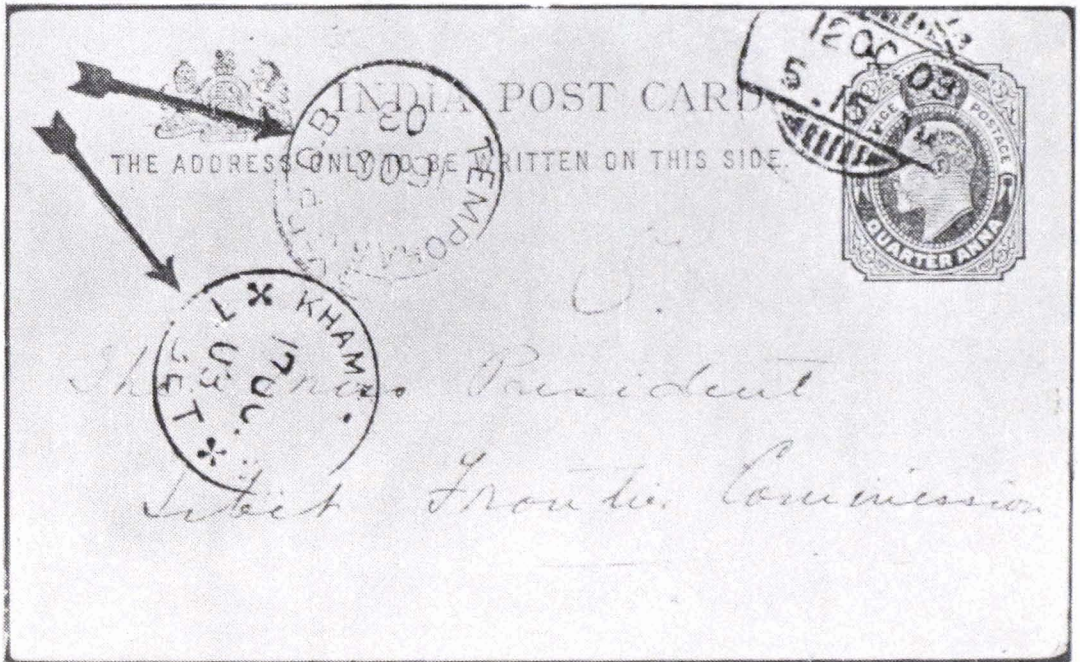 INDIA POST CARD
THE ADDRESS ONLY TO BE WRITTEN ON THIS SIDE.
12 OC 03
5.15
POSTAGE
QUARTER ANNA
TEMPORARY P.O. B
16 OC
03
KHAM
17 OC
03
President
Tibet Frontier Commission